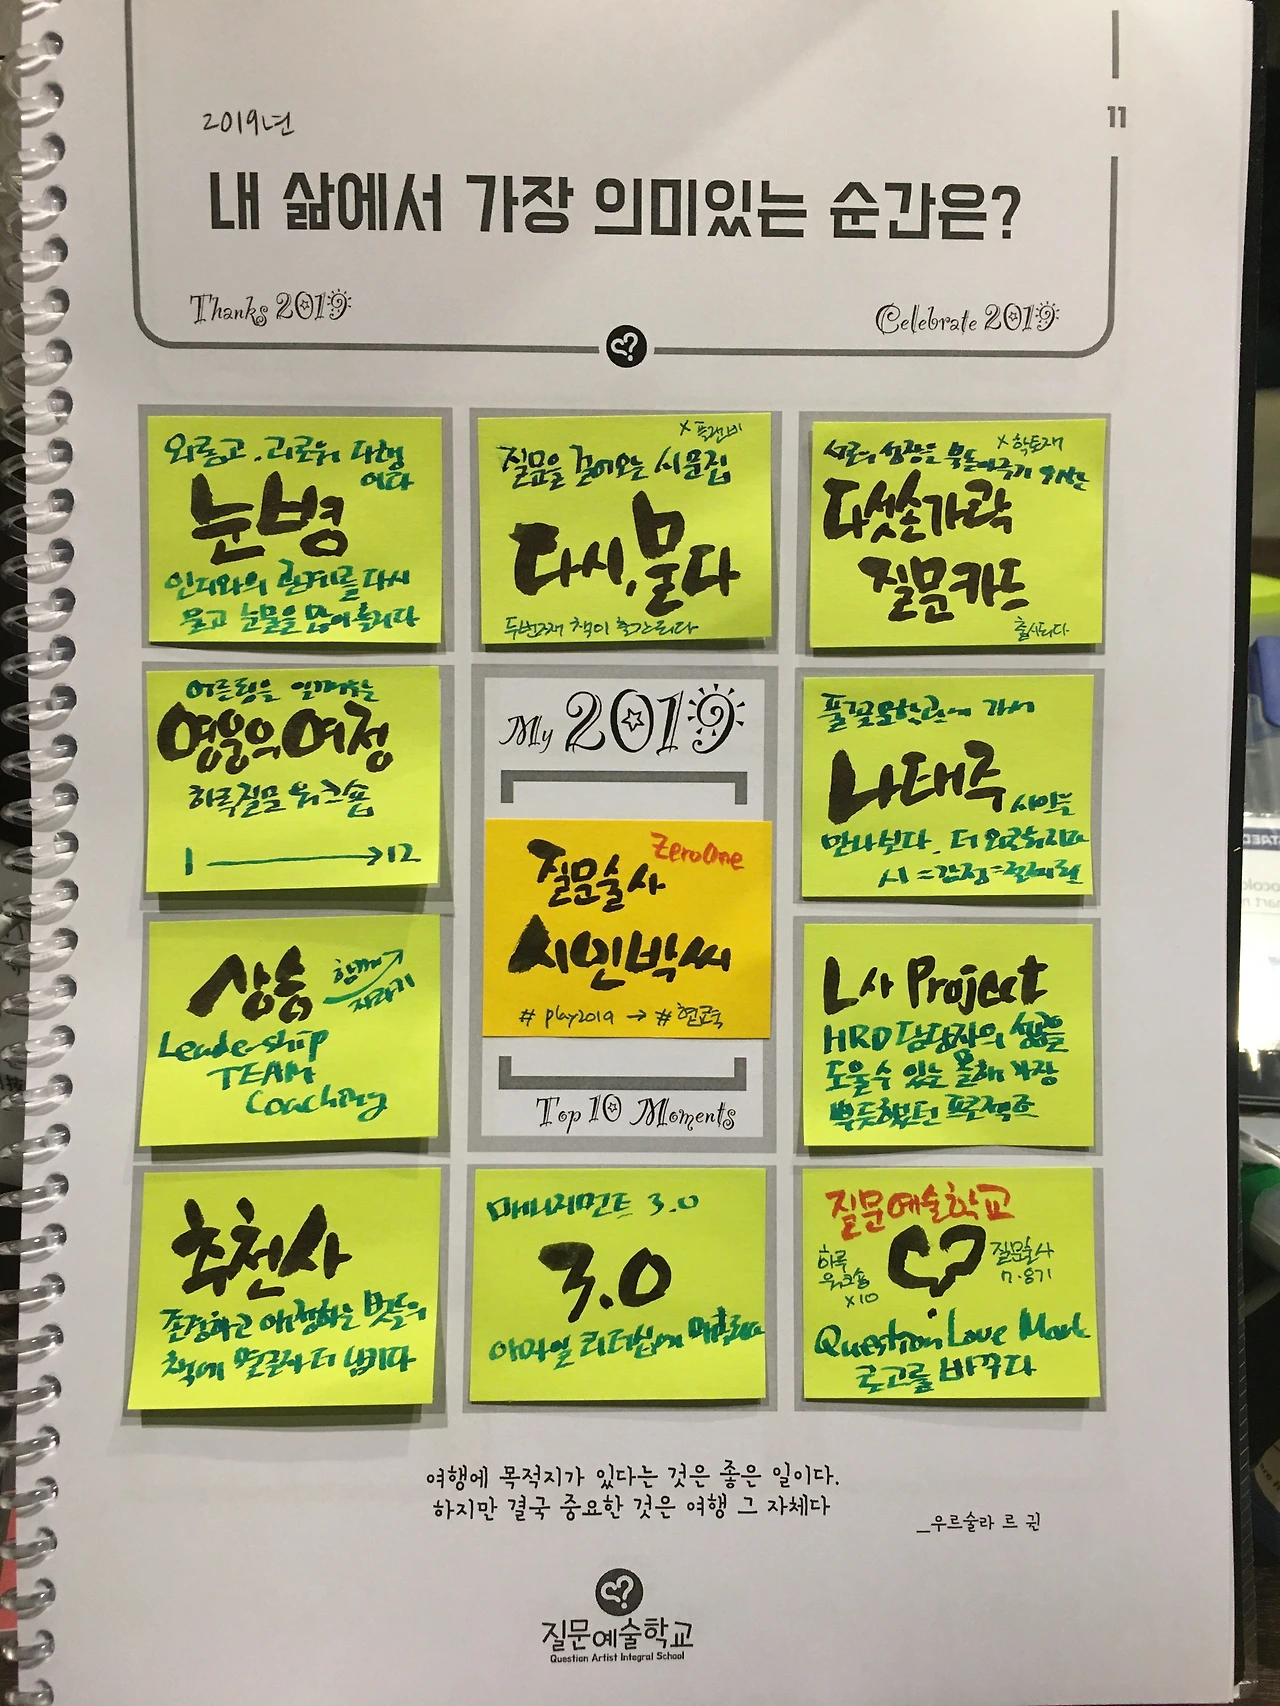 11
2019년
내 삶에서 가장 의미있는 순간은?
Thanks 2019
Celebrate 2019
외롭고, 괴로워 다행
이다
눈병
인디와의 관계를 다시
묻고 눈물을 많이 흘리다
x 플랜비
질문을 걸어오는 시문집
다시, 묻다
두번째 책이 출간되다
x 학토재
서로의 성장을 북돋아주기 위한
다섯손가락
질문카드
출시되다
어른됨을 일깨우는
영웅의 여정
하루질문 워크숍
1 → 12
My 2019
ZeroOne
질문술사
시인박씨
# play2019 → #
Top 10 Moments
풀꽃문학관에 가서
나태주 시인을
만나보다. 더 외로워지다
시 =감정=
상승
함께
자라기
Leadership
TEAM
Coaching
L사 Project
HRD 담당자의 성장을
도울수 있는 올해 가장
뿌듯했던 프로젝트
추천사
존경하고 애정하는 벗들의
책에 몇글자 더 남기다
매니지먼트 3.0
3.0
아자일 리더십에
질문예술학교
하루
워크숍
x10
질문술사
7·8기
Question Love Mark
로고를 바꾸다
여행에 목적지가 있다는 것은 좋은 일이다.
하지만 결국 중요한 것은 여행 그 자체다
_우르술라 르 귄
질문예술학교
Question Artist Integral School